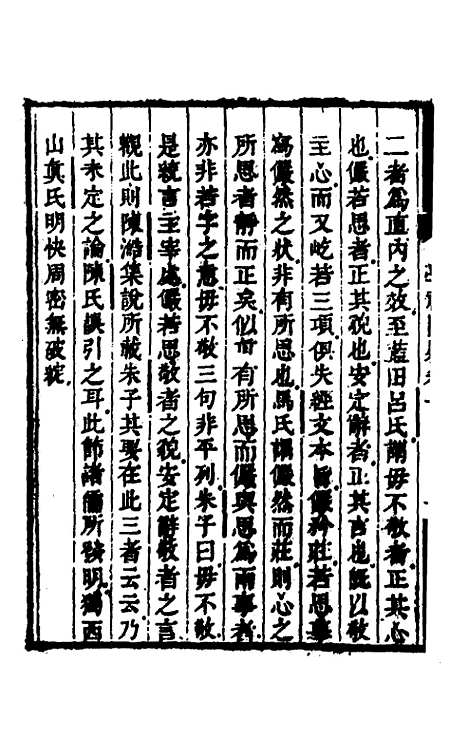 二者爲直內之效至藍田呂氏謂毋不敬者正其心
也儼若思者正其貌也安定辭者正其言也旣以敬
主心而又屹若三項俱失經文本旨儼矜莊若思專
爲儼然之狀非有所思也馬氏謂儼然而莊則心之
所思者靜而正矣似有所思而儼與思爲兩事者
亦非若字之意毋不敬三句非平列朱子曰毋不敬
是統言主宰處儼若思敬者之貌安定辭敬者之言
觀此則陳澔集說所載朱子其要在此三者云云乃
其未定之論陳氏誤引之耳此節諸儒所發明獨西
山眞氏明快周密無破綻